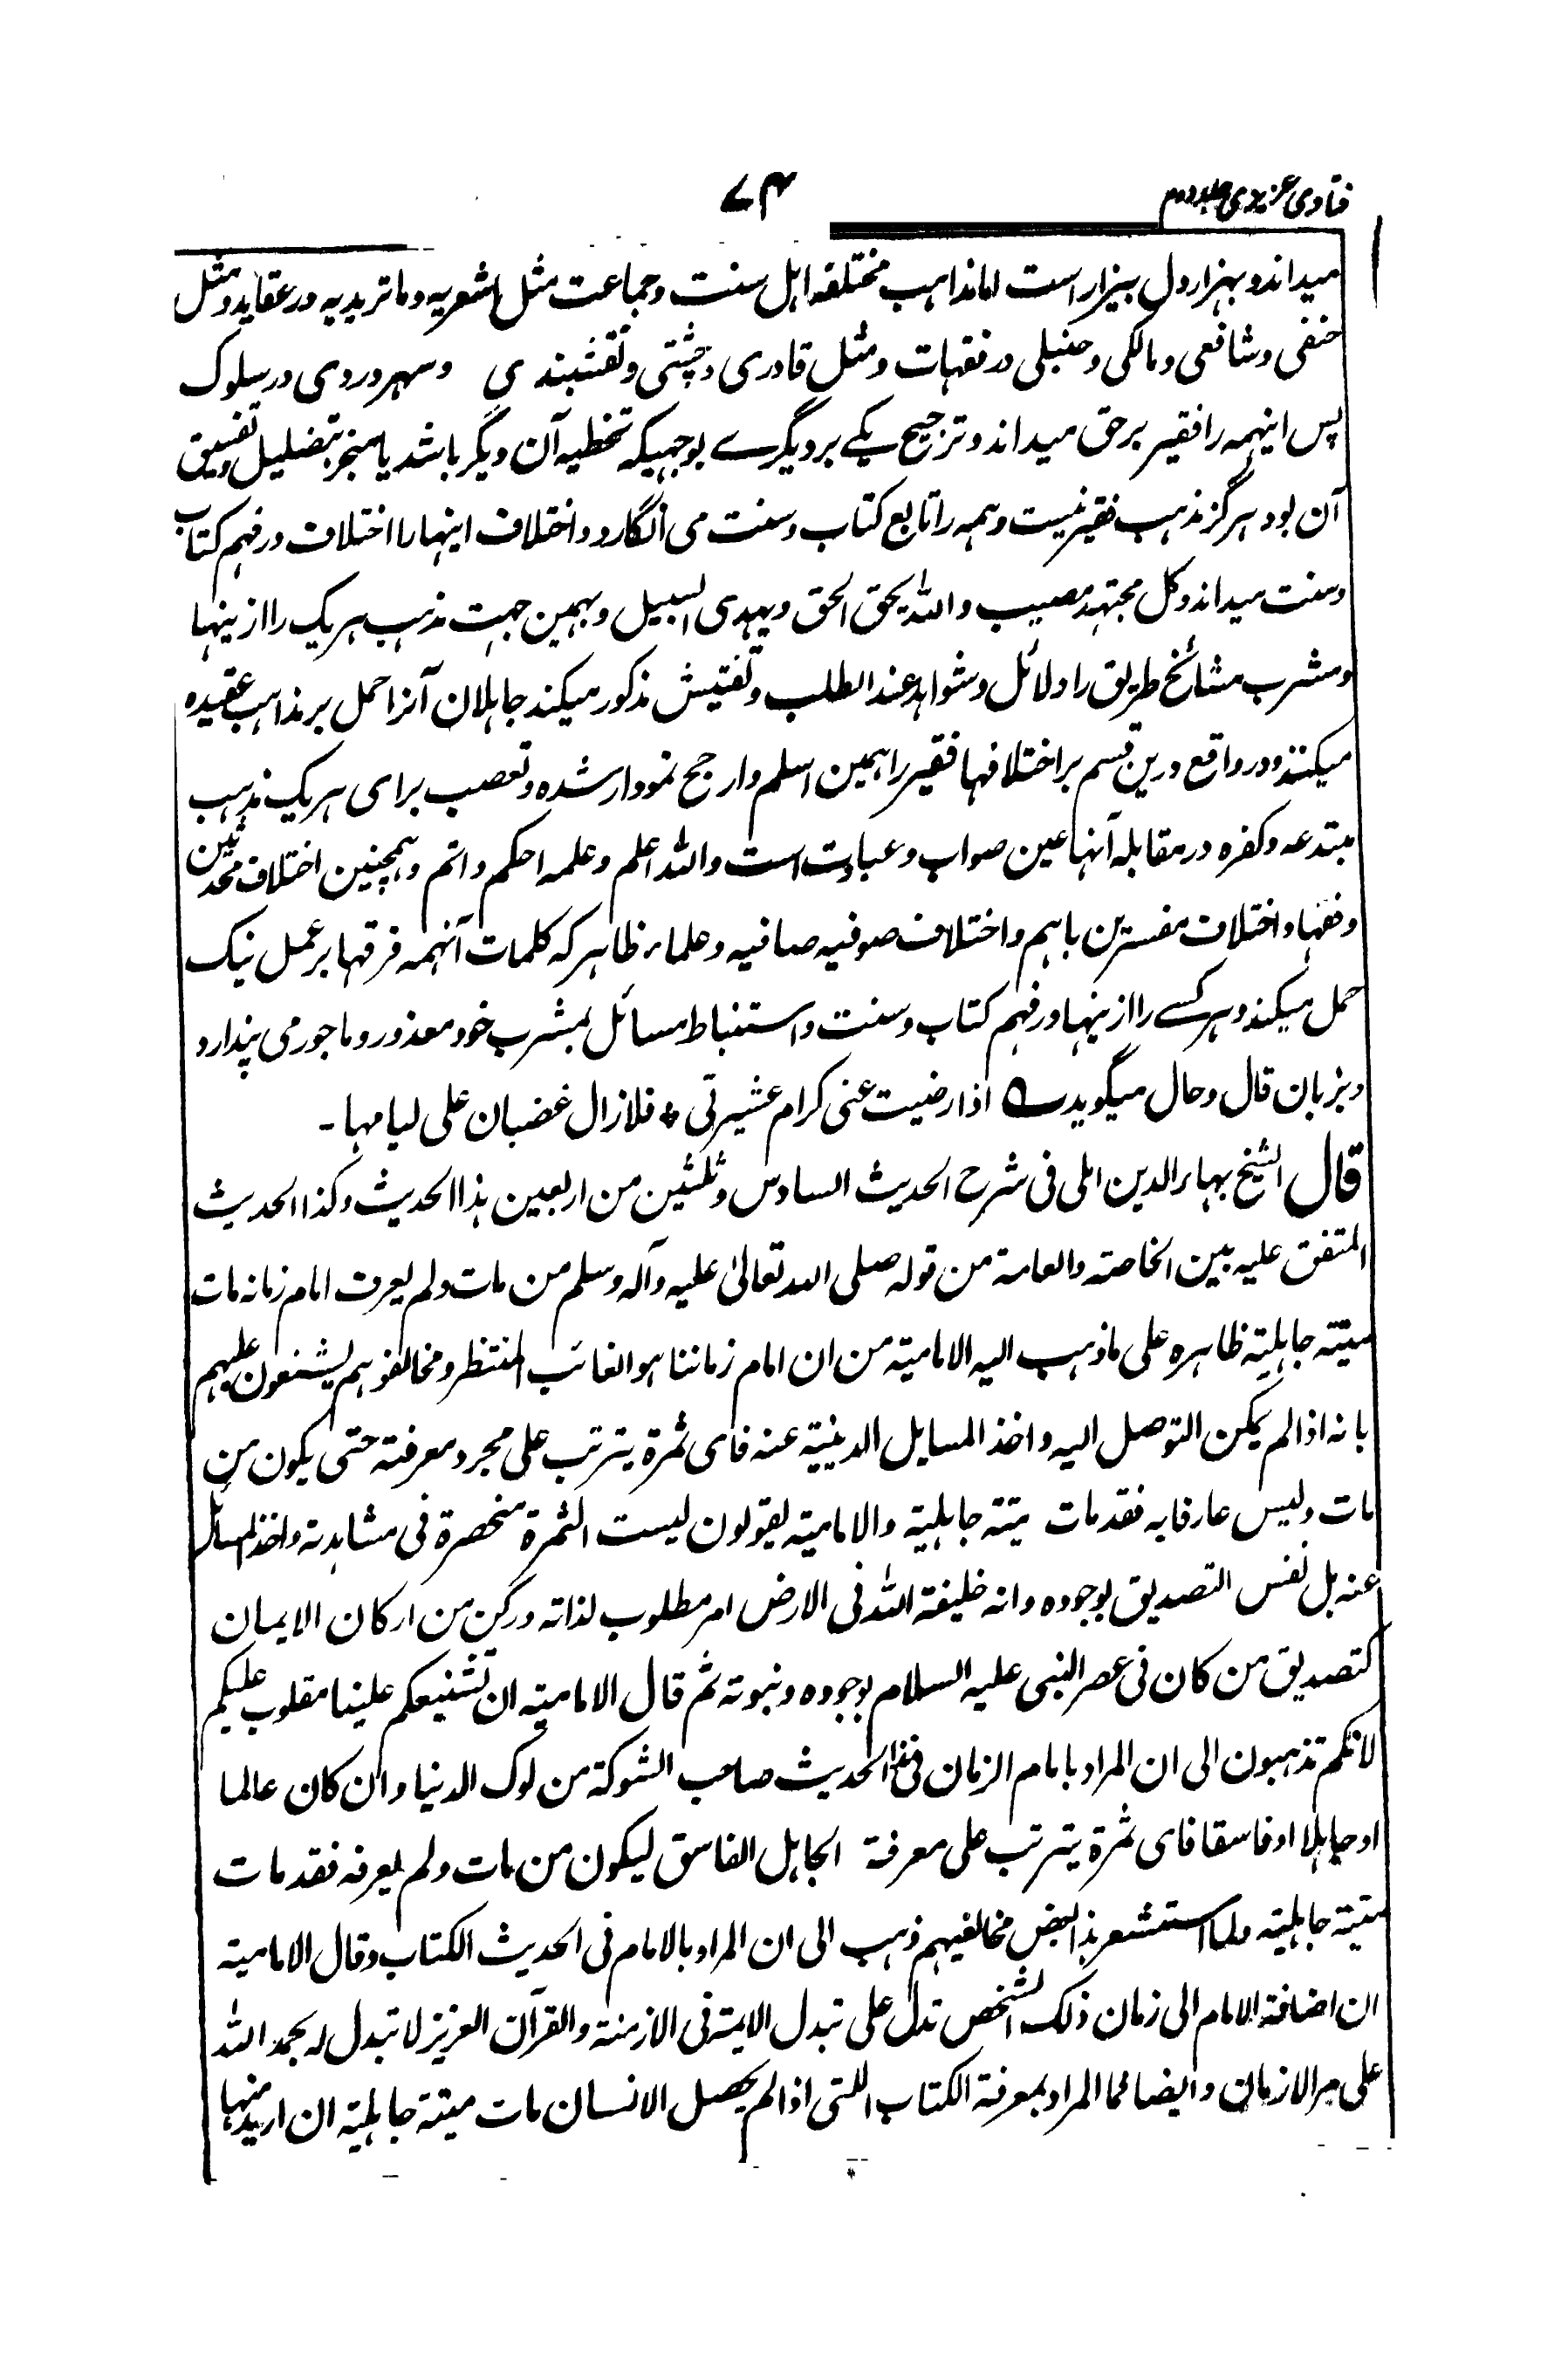 فتاوی عزیزی جلد دوم
۷۴
میداند و بہزار دل بیزار است اما مذاہب مختلفہ اہل سنت و جماعت مثل اشعریہ و ماتریدیہ در عقاید و مثل
حنفی و شافعی و مالکی و حنبلی در فقہیات و مثل قادری و چشتی و نقشبندی و سہروردی در سلوک
پس اینہمہ را فقیر برحق میداند و ترجیح یکے بر دیگرے بوجہیکہ تخطیہ آن دیگر باشد یا منجر بتضلیل و تفسیق
آن بود ہرگز مذہب فقیر نیست و ہمہ را تابع کتاب و سنت می انگارد و اختلاف اینہا را اختلاف در فہم کتاب
و سنت میداند و کل مجتہد مصیب و اللہ یحق الحق و یہدی السبیل و بہمین جہت مذہب ہریک را ازینہا
و مشرب مشائخ طریق را دلائل و شواہد عند الطلب و تفتیش مذکور میکند جاہلان آنرا حمل بر مذاہب عقیدہ
میکنند و در واقع درین قسم بر اختلافہا فقیر را ہمین اسلم و ارجح نمودار شدہ و تعصب برای ہریک مذہب
مبتدعہ و کفرہ در مقابلہ آنہا عین صواب و عبادت است و اللہ اعلم و علمہ احکم و اتم و ہمچنین اختلاف محدثین
و فقہا و اختلاف مفسرین باہم و اختلاف صوفیہ صافیہ و علماء ظاہر کہ کلمات آنہمہ فرقہا بر عمل نیک
حمل میکند و ہرکسے را ازینہا در فہم کتاب و سنت و استنباط مسائل بمشرب خود معذور و ماجور می پندارد
و بزبان قال و حال میگوید ؎ اذا رضیت عنی کرام عشیرتی * فلا زال غضبان علی لیامہا ۔
قال الشیخ بہاء الدین املی فی شرح الحدیث السادس و ثلثین من اربعین ہذا الحدیث و کذا الحدیث
المتفق علیہ بین الخاصۃ والعامۃ من قولہ صلی اللہ تعالیٰ علیہ وآلہ وسلم من مات ولم یعرف امام زمانہ مات
میتتہ جاہلیتہ ظاہرہ علی ما ذہب الیہ الامامیتہ من ان امام زماننا ہو الغائب المنتظر و مخالفوہم یشنعون علیہم
بانہ اذا لم یکن التوصل الیہ و اخذ المسایل الدینیتہ عنہ فای ثمرۃ یترتب علی مجرد معرفتہ حتی یکون من
مات ولیس عارفا بہ فقد مات میتتہ جاہلیتہ والامامیتہ یقولون لیست الثمرۃ منحصرۃ فی مشاہدتہ و اخذ المسائل
عنہ بل نفس التصدیق بوجودہ و انہ خلیفتہ اللہ فی الارض امر مطلوب لذاتہ و رکن من ارکان الایمان
کتصدیق من کان فی عصر النبی علیہ السلام بوجودہ و نبوتہ ثم قال الامامیتہ ان تشنیعکم علینا مقلوب علیکم
لانکم تذہبون الی ان المراد بامام الزمان فی ہذا الحدیث صاحب الشوکۃ من لوک الدنیا و ان کان عالما
او جاہلا او فاسقا فای ثمرۃ یترتب علی معرفۃ الجاہل الفاسق لیکون من مات ولم یعرفہ فقد مات
میتتہ جاہلیتہ ولما استشعر ہذا بعض مخالفیہم ذہب الی ان المراد بالامام فی الحدیث الکتاب وقال الامامیتہ
ان اضافتہ الامام الی زمان ذلک الشخص تدل علی تبدل الایمتہ فی الازمنتہ والقرآن العزیز لا تبدل لہ بحمد اللہ
علی مر الازمان و ایضا فما المراد بمعرفۃ الکتاب اللتی اذا لم یحصل الانسان مات میتتہ جاہلیتہ ان ارید منہا